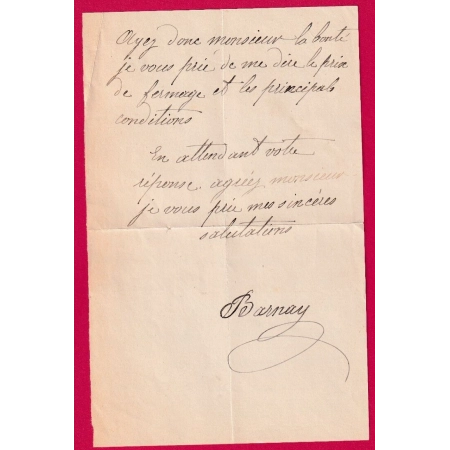 Ayez donc monsieur la bonté
je vous prié de me dire le prix
de fermage et les principals
conditions
En attendant votre
réponse agréez monsieur
je vous prie mes sincéres
salutations
Barnay